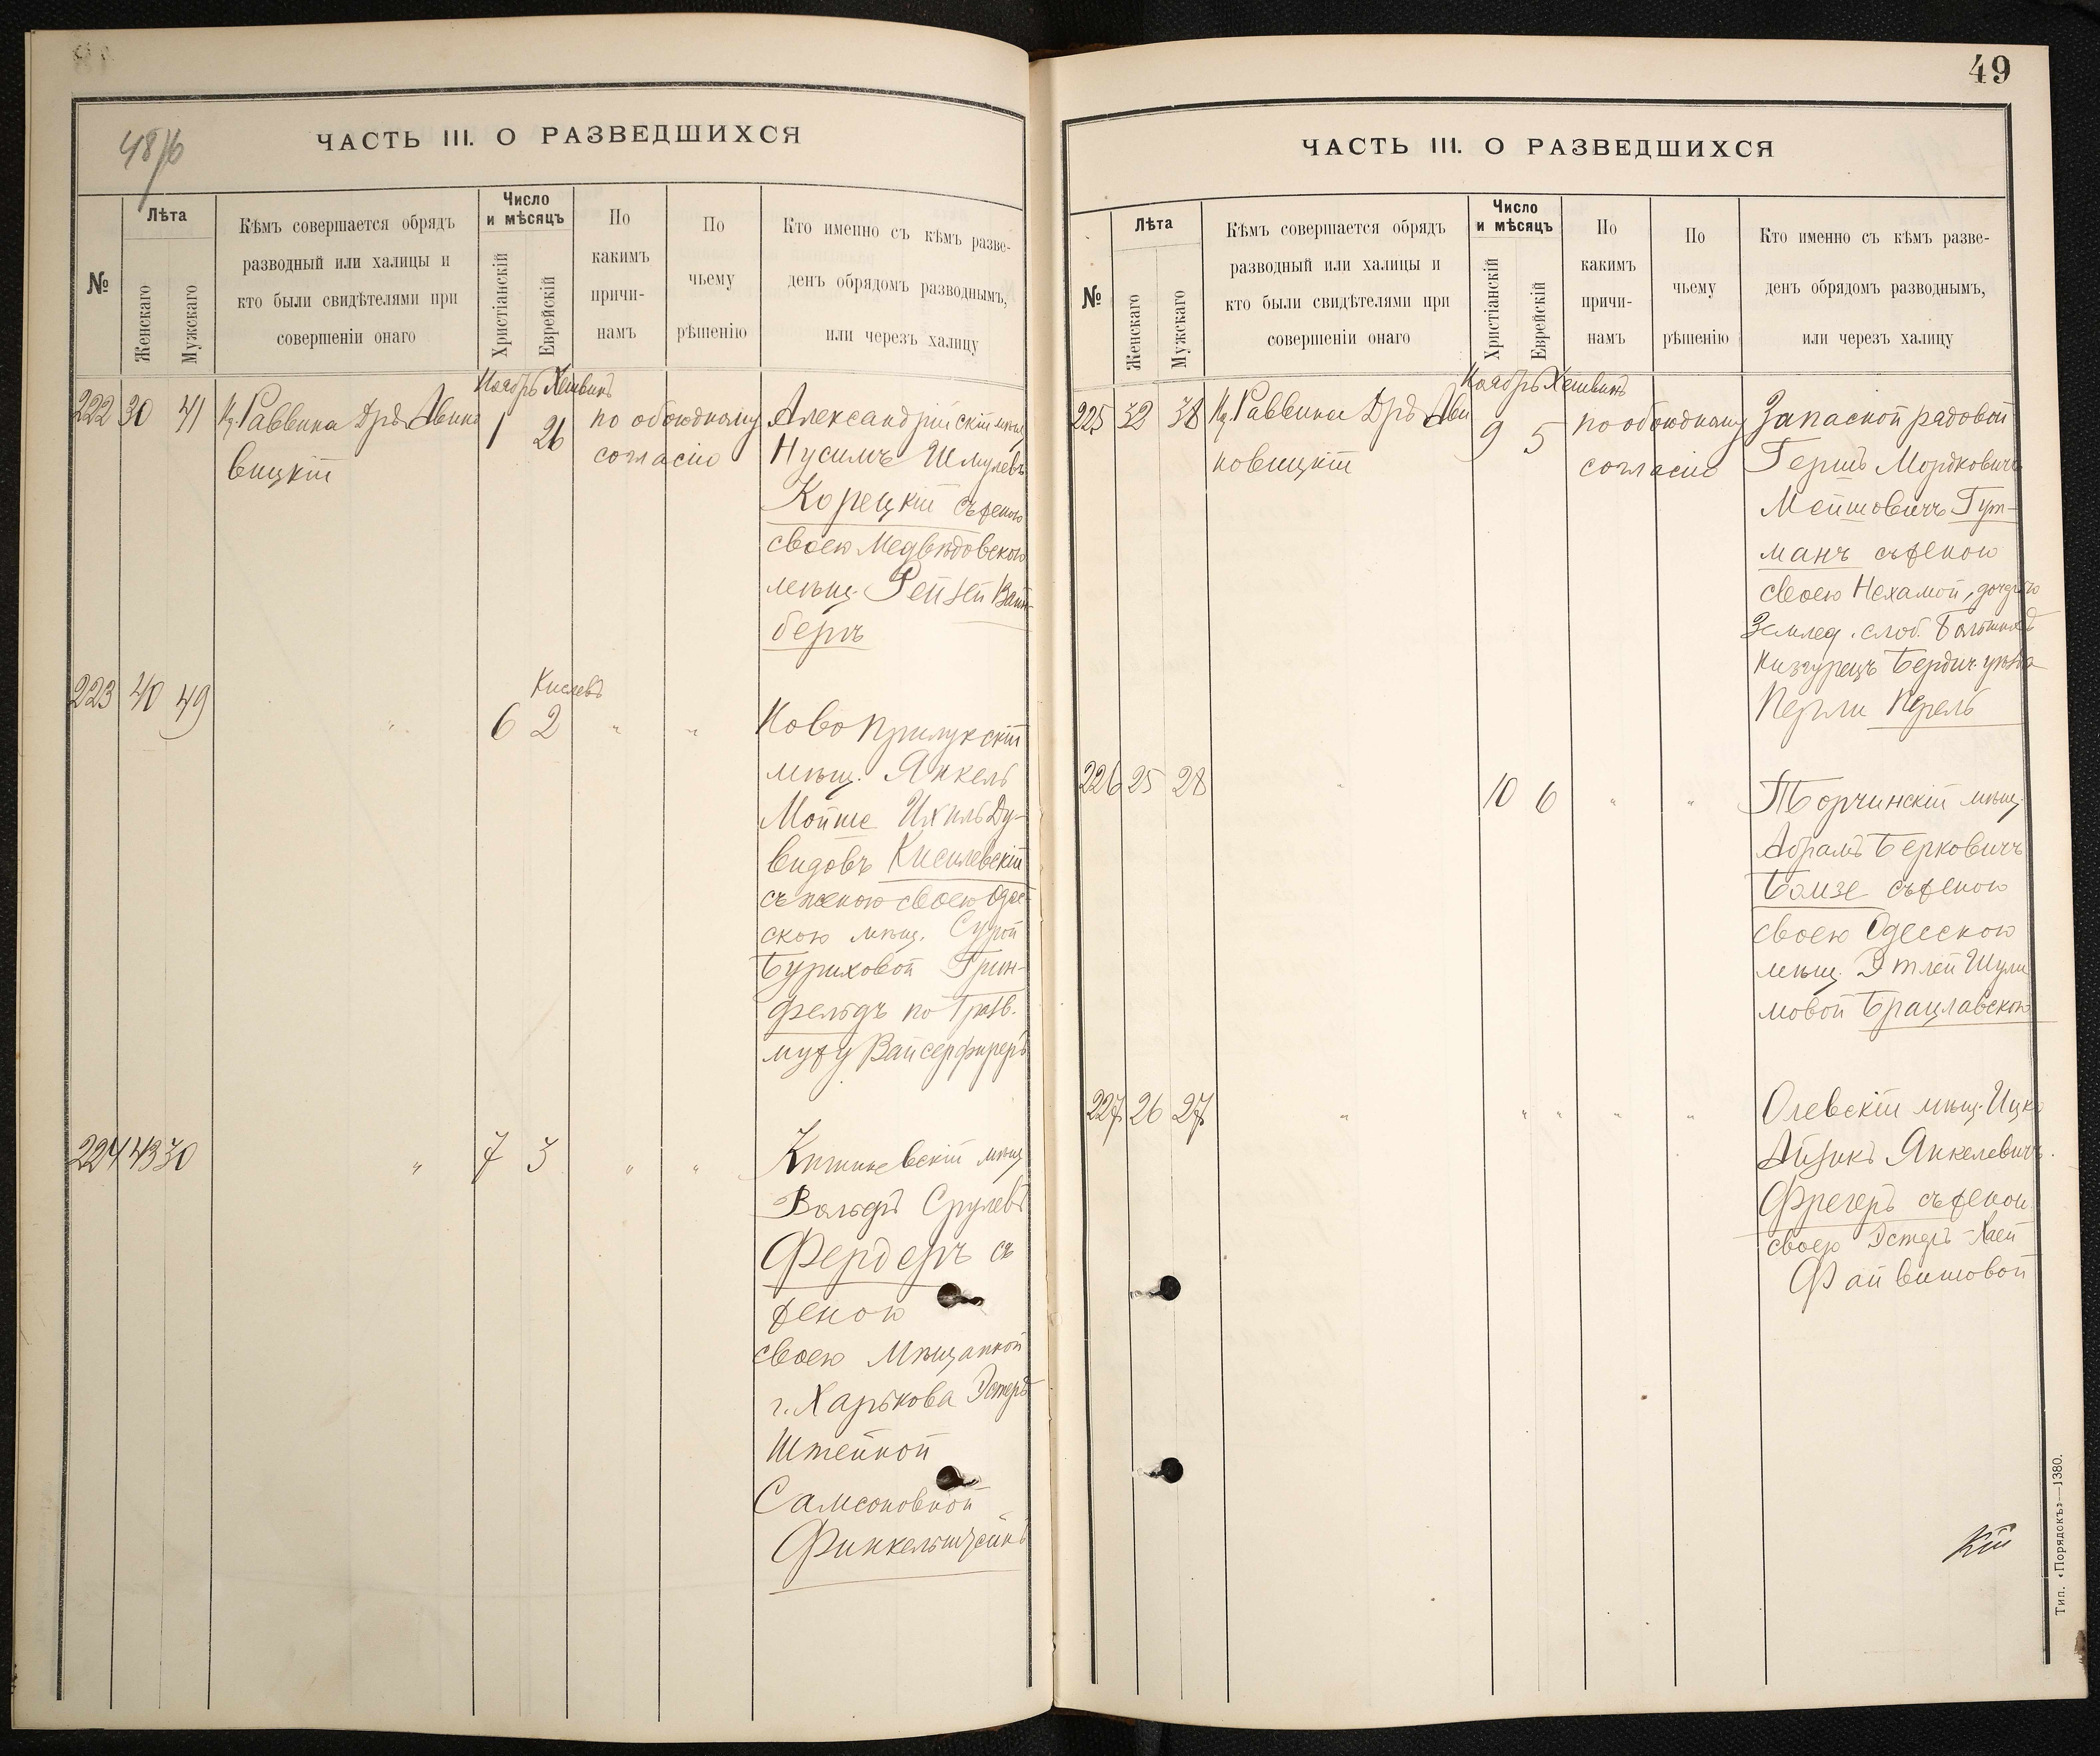 48/б
ЧАСТЬ III. О РАЗВЕДШИХСЯ
№
Лѣта
Женскаго
Мужскаго
Кѣмъ совершается обрядъ
разводный или халицы и
кто были свидѣтелями при
совершеніи онаго
Число
и мѣсяцъ
Христіанскій
Еврейскій
По
какимъ
причи-
намъ
По
чьему
рѣшенію
Кто именно съ кѣмъ разве-
денъ обрядомъ разводнымъ,
или черезъ халицу
Ноябрь Хешвинъ
222 30 41 Раввина Дръ Авино
вицкій
1 26
по обоюдному
согласію
Александрійскій мѣщ
Нусимъ Шмулевъ
Корецкій съ женою
своею Медвѣдовскою
мѣщ. Рейзей Вайн-
бергъ
Кислевъ
223 40 49 " 6 2 " "
Ново Прилукскій
мѣщ. Янкель
Мойше Ихиль Ду-
видовъ Кисилевскій
съ женою своею Одес-
скою мѣщ. Сурой
Буриховой Грин-
фельдъ по
мужу Вайсерфиреръ
224 43 30 " 7 3 " "
Кишиневскій мѣщ
Вольфъ Срулевъ
Фердеръ съ
женою
своею Мѣщанкой
г. Харькова Эстеръ
Штейной
Самсоновной
Финкельштейнъ
49
ЧАСТЬ III. О РАЗВЕДШИХСЯ
№
Лѣта
Женскаго
Мужскаго
Кѣмъ совершается обрядъ
разводный или халицы и
кто были свидѣтелями при
совершеніи онаго
Число
и мѣсяцъ
Христіанскій
Еврейскій
По
какимъ
причи-
намъ
По
чьему
рѣшенію
Кто именно съ кѣмъ разве-
денъ обрядомъ разводнымъ,
или черезъ халицу
Ноябрь Хешвинъ
225 32 38 Раввина Дръ Ави
новицкій
9 5
по обоюдному
согласію
Запасной рядовой
Гершъ Мордковичъ
Мейшовичъ Гут-
манъ съ женою
своею Нехамой, дочерью
Землед. слоб.
Бердич. уѣзда
Перли
226 25 28 " 10 6 " "
Торчинскій мѣщ.
Абрамъ Берковичъ
Бомзе съ женою
своею Одесскою
мѣщ. Этлей Шули
мовой Брацлавскою
227 26 27 " " " " "
Олевскій мѣщ. Ицко
Айзикъ Янкелевичъ
Фрегеръ съ женою
своею Эстеръ-Хаей
Файвишовой
кій
Тип. «Порядокъ»—1380.